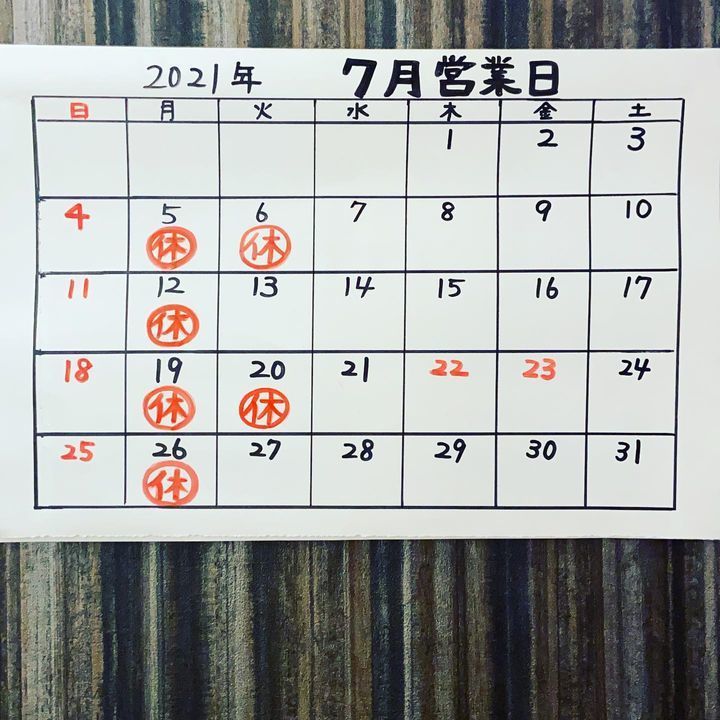 2021年 7月営業日
日 月 火 水 木 金 土
1 2 3
4 5 6 7 8 9 10
休 休
11 12 13 14 15 16 17
休
18 19 20 21 22 23 24
休 休
25 26 27 28 29 30 31
休